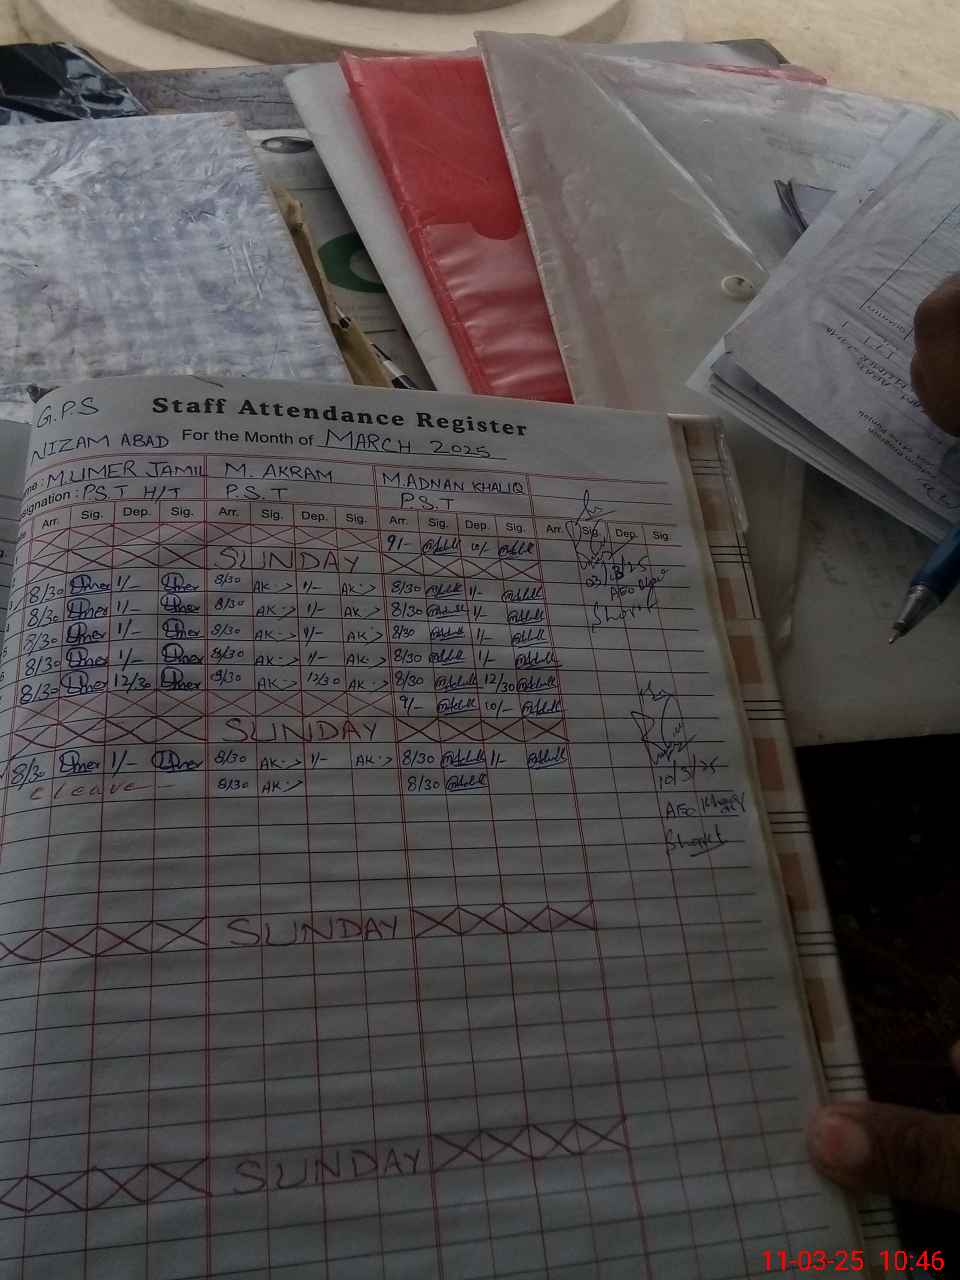 G.P.S
Staff Attendance Register
NIZAM ABAD For the Month of MARCH 2025
me: M.UMER JAMIL M. AKRAM M.ADNAN KHALIQ
signation: P.S.T H/T P.S.T P.S.T
Arr. Sig. Dep. Sig. Arr. Sig. Dep. Sig. Arr. Sig. Dep. Sig. Arr. Sig. Dep. Sig.
9/- 10/-
SUNDAY
8/30 Umer 1/- Umer 8/30 AK 1/- AK 8/30 1/-
8/30 Umer 1/- Umer 8/30 AK 1/- AK 8/30 1/-
8/30 Umer 1/- Umer 8/30 AK 1/- AK 8/30 1/-
8/30 Umer 1/- Umer 8/30 AK 1/- AK 8/30 1/-
8/30 Umer 12/30 Umer 8/30 AK 12/30 AK 8/30 12/30
9/- 10/-
SUNDAY
8/30 Umer 1/- Umer 8/30 AK 1/- AK 8/30 1/-
c leave 8/30 AK 8/30
10/3/25
AEO
SUNDAY
SUNDAY
11-03-25 10:46